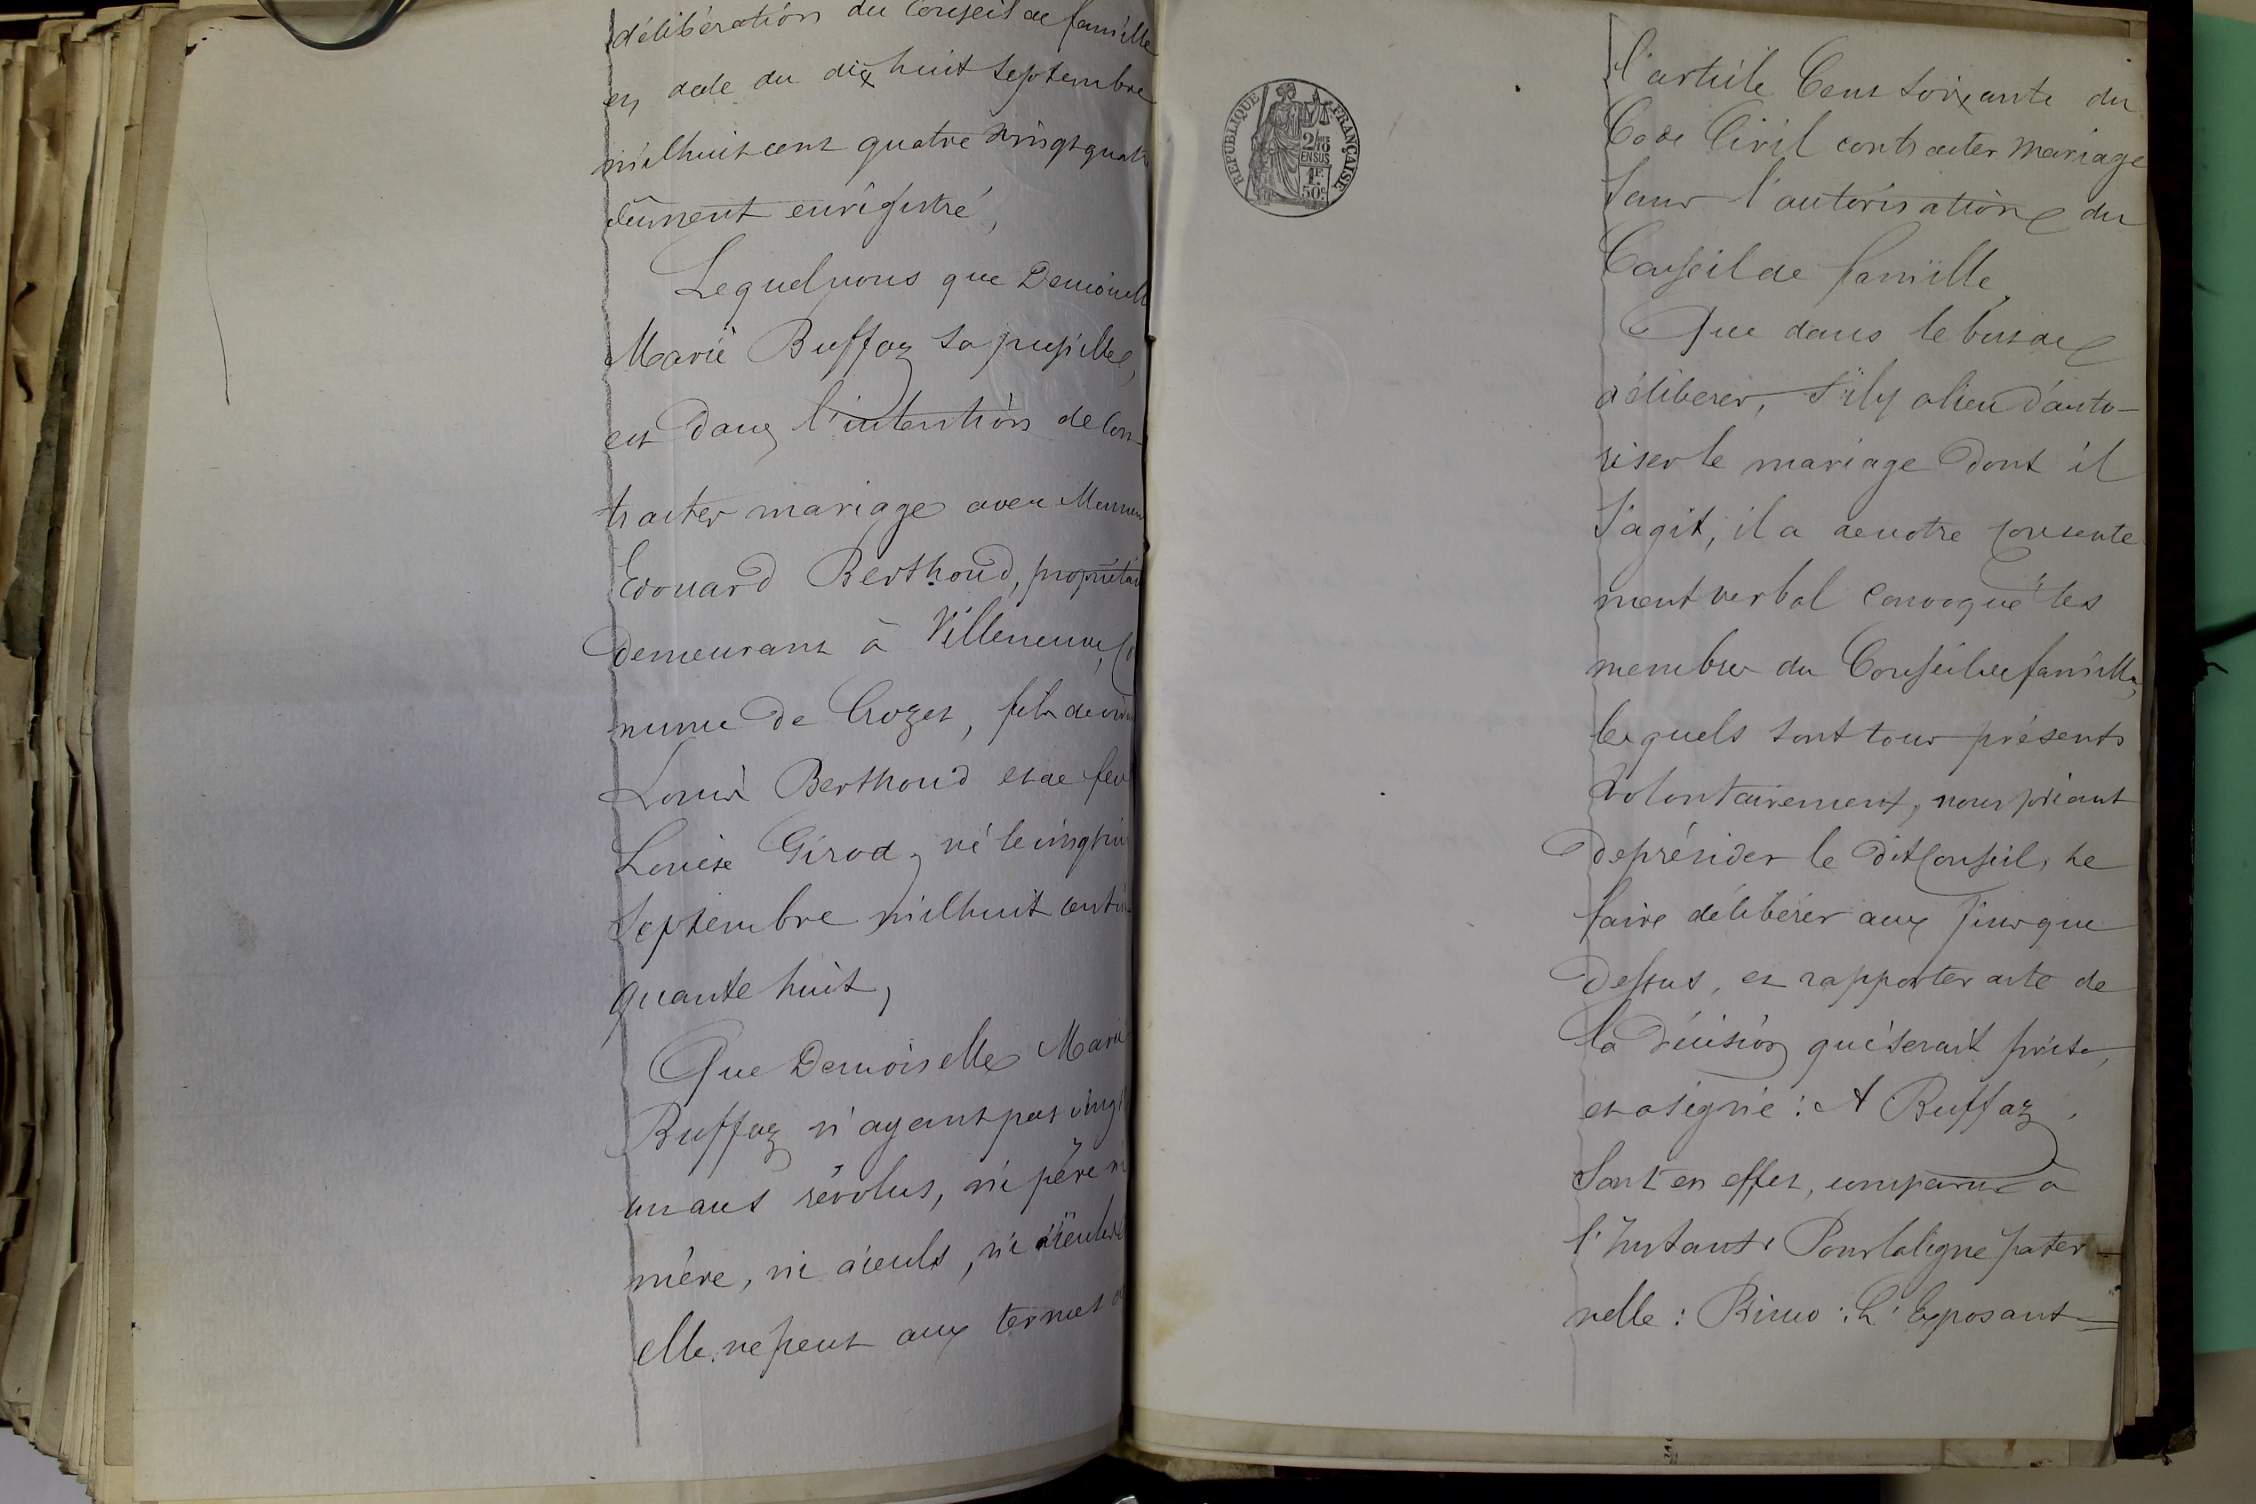 délibération du Conseil de famille
en date du dix huit Septembre
mil huit cent quatre vingt quatre
dûment enrégistré,
Lequel nous que Demoiselle
Marie Buffaz sa pupille,
est dans l'intention de Con-
tracter mariage avec Monsieur
Edouard Berthoud, propriétai
demeurant à Villeneuve, Co
mune de Crozet, fils de
Louis Berthoud et de feu
Louise Girod, né le vingt
Septembre mil huit cent cin
quante huit,
Que Demoiselle Marie
Buffaz n'ayant pas vingt
un ans révolus, ni père ni
mère, ni aïeuls, ni aïeules
elle ne peut aux termes de
REPUBLIQUE FRANÇAISE
2/10
EN SUS
1F.
50c
l'article Cent soixante du
Code Civil contracter mariage
sans l'autorisation du
Conseil de famille,
Que dans le but de
délibérer, s'il y a lieu d'auto-
riser le mariage dont il
s'agit, il a de notre consente
ment verbal convoqué les
membres du Conseil de famille,
lesquels sont tous présents
volontairement, nous priant
de présider le dit Conseil, le
faire délibérer aux fins que
dessus, et rapporter acte de
la décision qui serait prise,
et a signé : A Buffaz.
Sont en effet, comparus à
l'Instant Pour la ligne pater-
nelle : Primo : L'Exposant